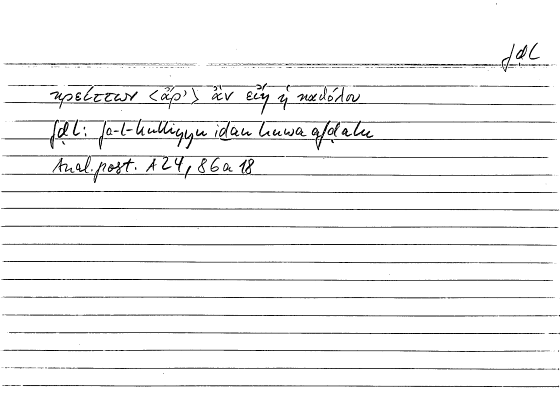 fḍl
κρείττων <ἄρ’> ἂν εἴη ἡ καθόλου
fḍl: fa-l-kullīyu iḏan huwa afḍalu
Anal. post. A 24, 86a 18